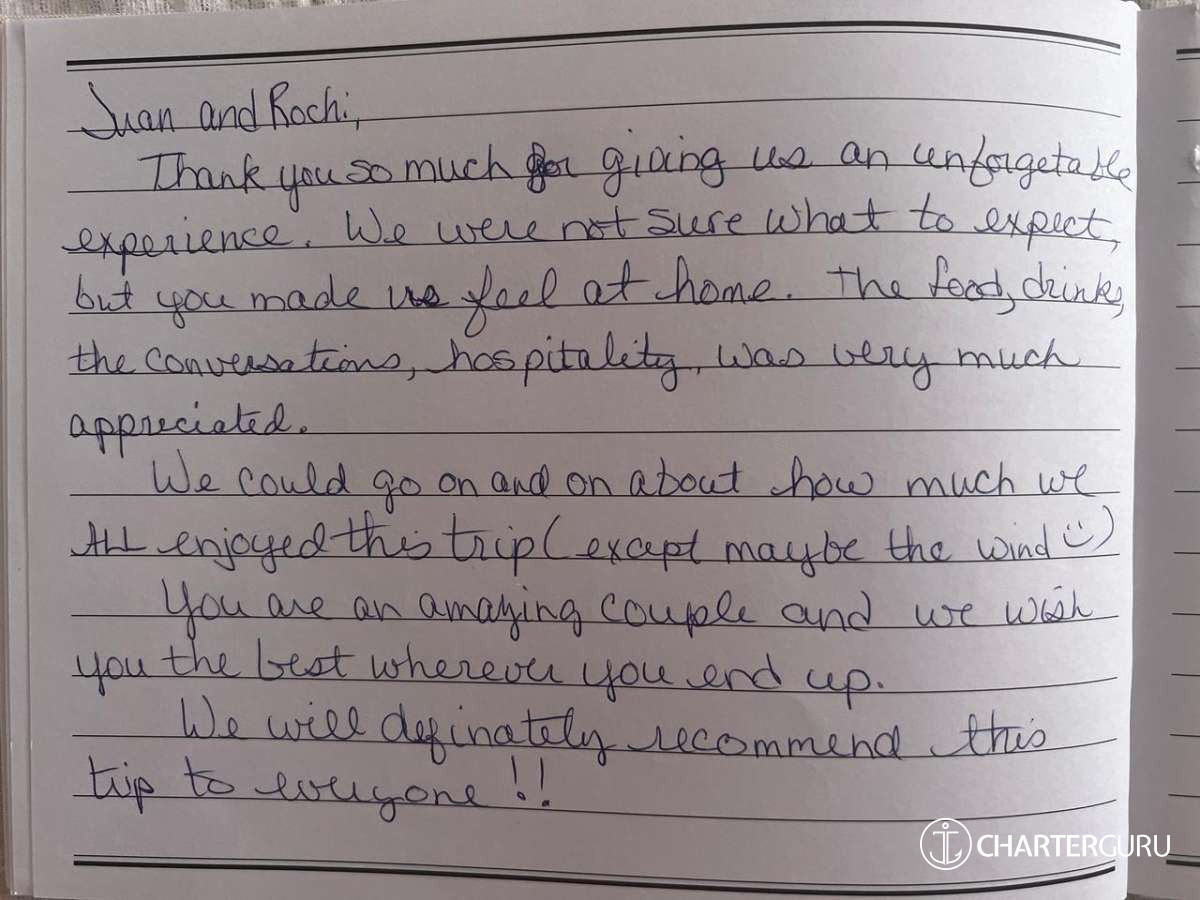 Juan and Rochi,
Thank you so much for giving us an unforgetable
experience. We were not sure what to expect,
but you made us feel at home. The food, drinks,
the conversations, hospitality, was very much
appreciated.
We could go on and on about how much we
ALL enjoyed this trip (except maybe the wind ☺)
You are an amazing couple and we wish
you the best wherever you end up.
We will definately recommend this
trip to everyone !!
CHARTERGURU